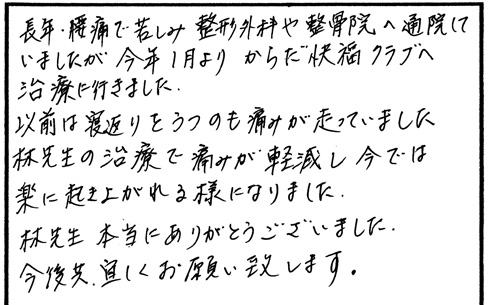 長年・腰痛で苦しみ 整形外科や整骨院へ通院して
いましたが 今年1月より からだ快福クラブへ
治療に行きました.
以前は寝返りをうつのも痛みが走っていました
林先生の治療で痛みが軽減し 今では
楽に起き上がれる様になりました.
林先生 本当にありがとうございました.
今後共.宜しくお願い致します。